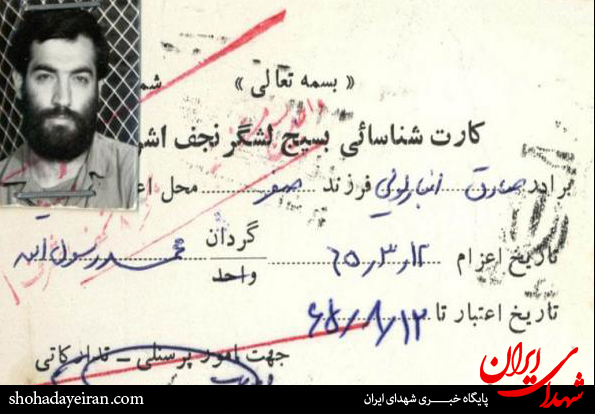 « بسمه تعالی »
کارت شناسائی بسیج لشگر نجف اش
برادر صادق انبارلوئی فرزند صفر محل اع
تاریخ اعزام ۶۵/۳/۱۲ گردان محمد رسول الله
واحد
تاریخ اعتبار تا ۶۵/۸/۱۲
جهت امور پرسنلی – تدارکاتی
شهدای ایران
پایگاه خبری شهدای ایران
shohadayeiran.com